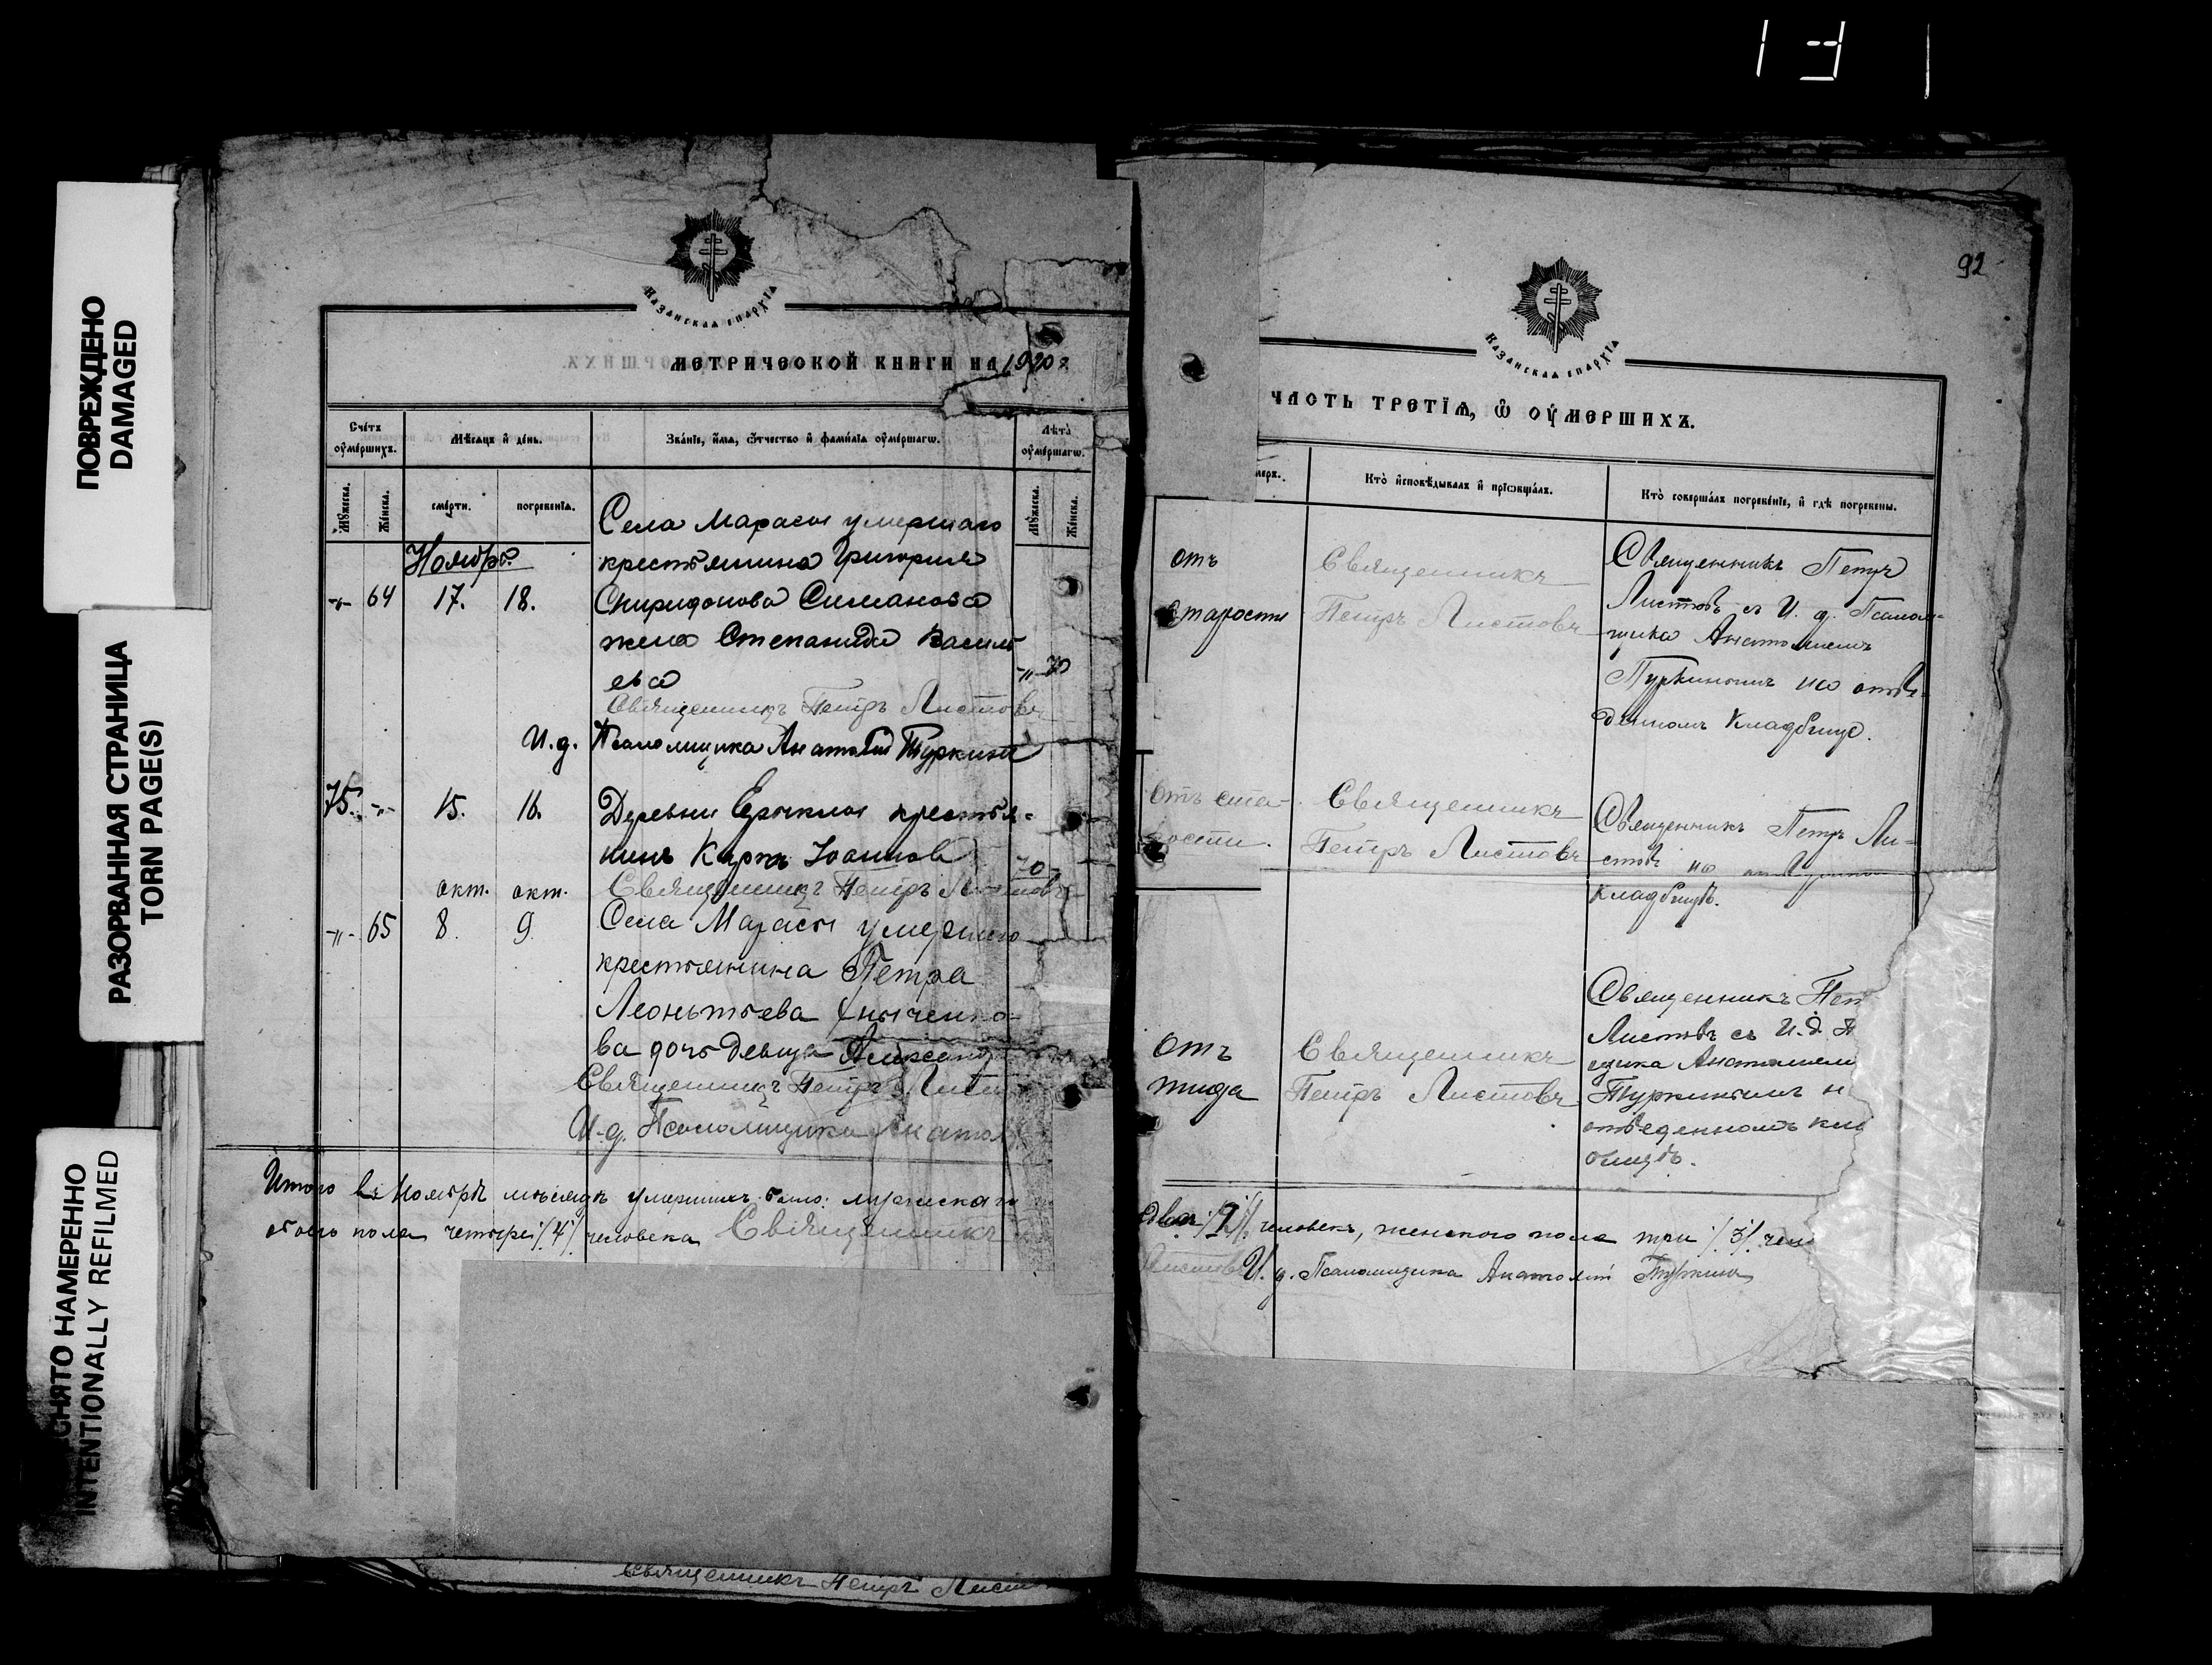 ПОВРЕЖДЕНО
DAMAGED
РАЗОРВАННАЯ СТРАНИЦА
TORN PAGE(S)
СНЯТО НАМЕРЕННО
INTENTIONALLY REFILMED
КАЗАНСКАЯ ЕПАРХІЯ
МЕТРИЧЕСКОЙ КНИГИ НА 1920 г
Счетъ оумершихъ.
Мѣсяцъ и день.
Званіе, имя, отчество и фамилія оумершагѡ.
Лѣта оумершагѡ.
Мужеска.
Женска.
смерти.
погребенія.
Мужеска.
Женска.
Села Марасы умершаго
Ноябрь.
крестьянина Григорія
-"- 64 17. 18. Спиридонова Симанова
жена Степанида Василь
-"- 70
ева
Священникъ Петръ Листовъ
И. д. Псаломщика Анатолий Туркинъ
75. -"- 15. 16. Деревни Ерыклы крестья-
нинъ Карпъ Іоанновъ 70
окт. окт. Священникъ Петръ Листовъ
-"- 65 8. 9. Села Марасы умершаго
крестьянина Петра
Леонтьева
ва дочь девица Александ
Священникъ Петръ Листо
И. д. Псаломщика Анатол
Итого въ Ноябрѣ мѣсяцѣ умершихъ было: мужеска по
обоего пола четыре /4/ человека Священникъ
Священникъ Петръ Лист
92
КАЗАНСКАЯ ЕПАРХІЯ
ЧАСТЬ ТРЕТІЯ, Ѡ ОУМЕРШИХЪ.
меръ.
Кто исповѣдывалъ и пріобщалъ.
Кто совершалъ погребеніе, и гдѣ погребены.
отъ
старости
Священникъ
Петръ Листовъ
Священникъ Петръ
Листовъ съ И. д. Псалом-
щика Анатолиемъ
Туркинымъ на отве-
денномъ кладбище.
отъ ста-
рости.
Священникъ
Петръ Листовъ
Священникъ Петръ Ли-
стовъ на
кладбищѣ.
отъ
тифа
Священникъ
Петръ Листовъ
Священникъ Пет
Листовъ съ И. д. П
щика Анатолием
Туркинымъ н
отведенномъ кла
бищѣ.
человекъ, женского пола три /3/ чело
Листовъ И. д. Псаломщика Анатолий Туркинъ